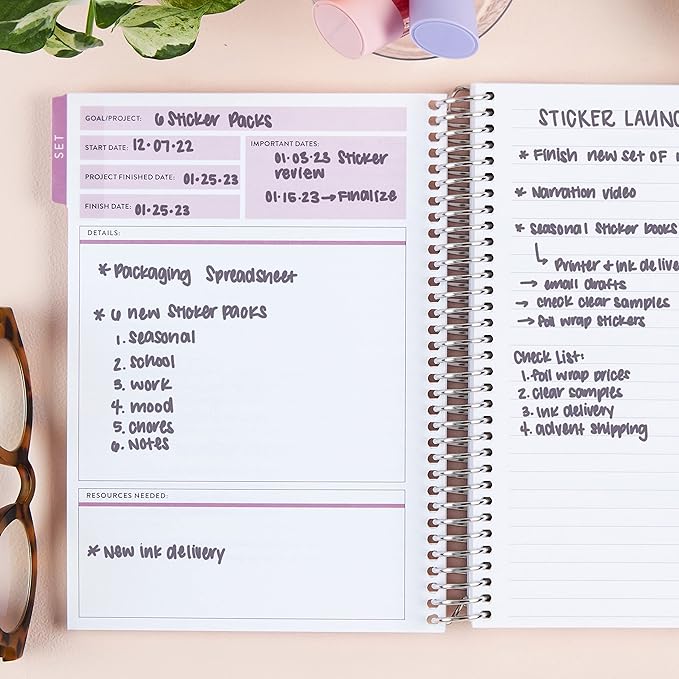 SET
GOAL/PROJECT: 6 Sticker Packs
START DATE: 12.07.22
PROJECT FINISHED DATE: 01.25.23
FINISH DATE: 01.25.23
IMPORTANT DATES:
01.03.23 Sticker
review
01.15.23 → Finalize
DETAILS:
* Packaging Spreadsheet
* 6 new Sticker packs
1. Seasonal
2. School
3. work
4. mood
5. chores
6. Notes
RESOURCES NEEDED:
* New ink delivery
STICKER LAUNC
* Finish new set of
* Narration video
* Seasonal Sticker books
↳ Printer + ink delive
→ email drafts
→ check clear samples
→ foil wrap stickers
Check List:
1. foil wrap prices
2. clear samples
3. ink delivery
4. advent shipping